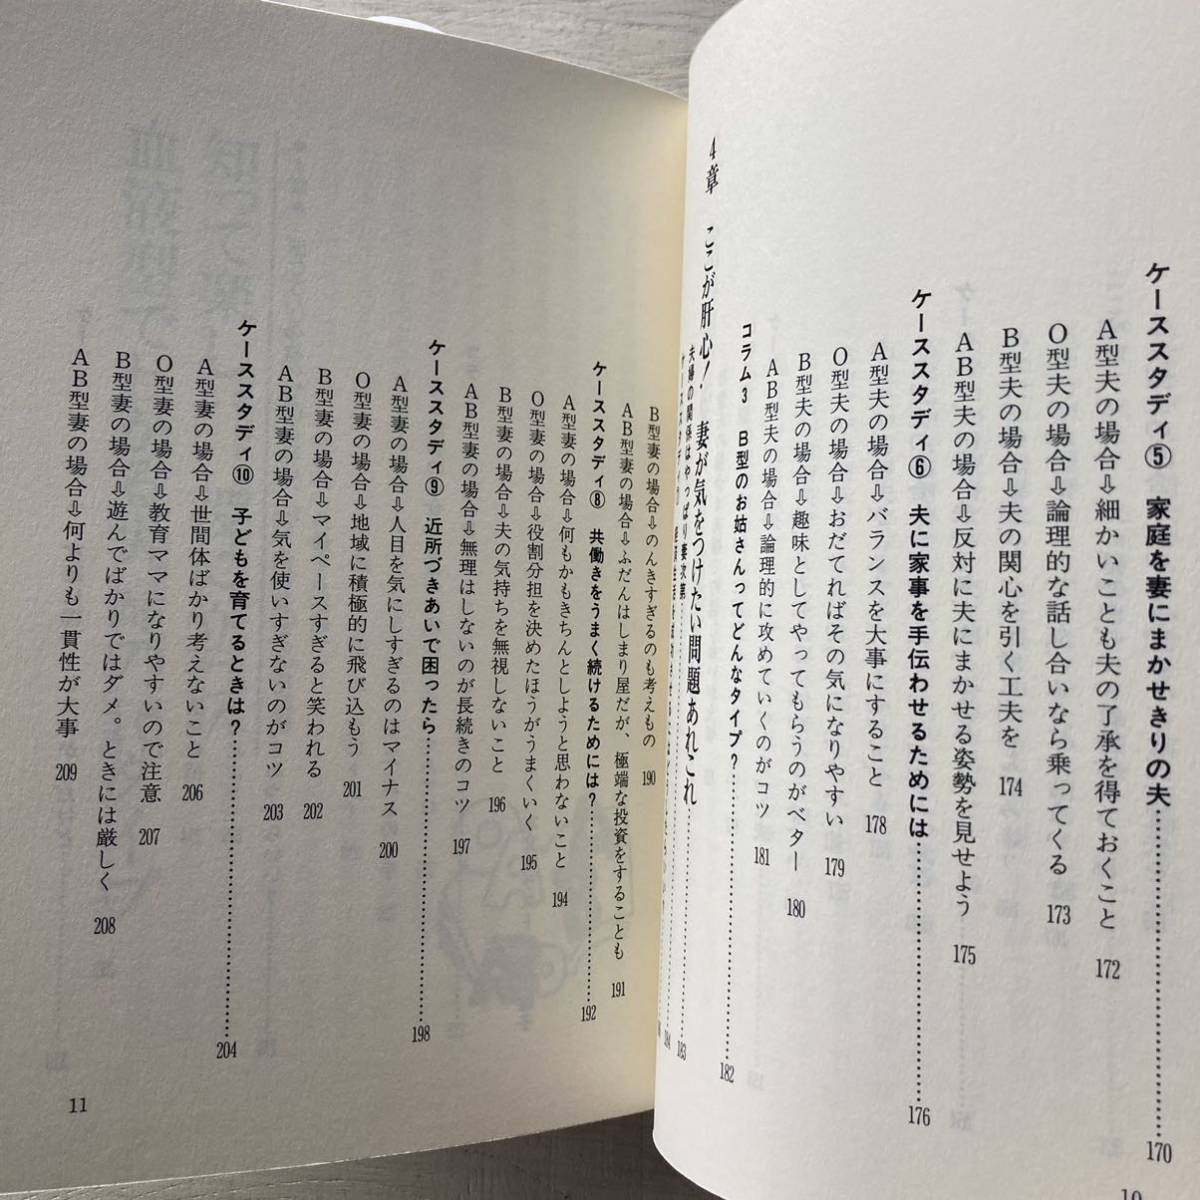 ケーススタディ⑤ 家庭を妻にまかせきりの夫……170
A型夫の場合⇨細かいことも夫の了承を得ておくこと 172
O型夫の場合⇨論理的な話し合いなら乗ってくる 173
B型夫の場合⇨夫の関心を引く工夫を 174
AB型夫の場合⇨反対に夫にまかせる姿勢を見せよう 175
ケーススタディ⑥ 夫に家事を手伝わせるためには……176
A型夫の場合⇨バランスを大事にすること 178
O型夫の場合⇨おだてればその気になりやすい 179
B型夫の場合⇨趣味としてやってもらうのがベター 180
AB型夫の場合⇨論理的に攻めていくのがコツ 181
コラム3 B型のお姑さんってどんなタイプ?……182
4章 ここが肝心! 妻が気をつけたい問題あれこれ……183
夫婦の関係はやっぱり妻次第……184
ケーススタディ
10
B型妻の場合⇨のんきすぎるのも考えもの 190
AB型妻の場合⇨ふだんはしまり屋だが、極端な投資をすることも 191
ケーススタディ⑧ 共働きをうまく続けるためには?……192
A型妻の場合⇨何もかもきちんとしようと思わないこと 194
O型妻の場合⇨役割分担を決めたほうがうまくいく 195
B型妻の場合⇨夫の気持ちを無視しないこと 196
AB型妻の場合⇨無理はしないのが長続きのコツ 197
ケーススタディ⑨ 近所づきあいで困ったら……198
A型妻の場合⇨人目を気にしすぎるのはマイナス 200
O型妻の場合⇨地域に積極的に飛び込もう 201
B型妻の場合⇨マイペースすぎると笑われる 202
AB型妻の場合⇨気を使いすぎないのがコツ 203
ケーススタディ⑩ 子どもを育てるときは?……204
A型妻の場合⇨世間体ばかり考えないこと 206
O型妻の場合⇨教育ママになりやすいので注意 207
B型妻の場合⇨遊んでばかりではダメ。ときには厳しく 208
AB型妻の場合⇨何よりも一貫性が大事 209
11